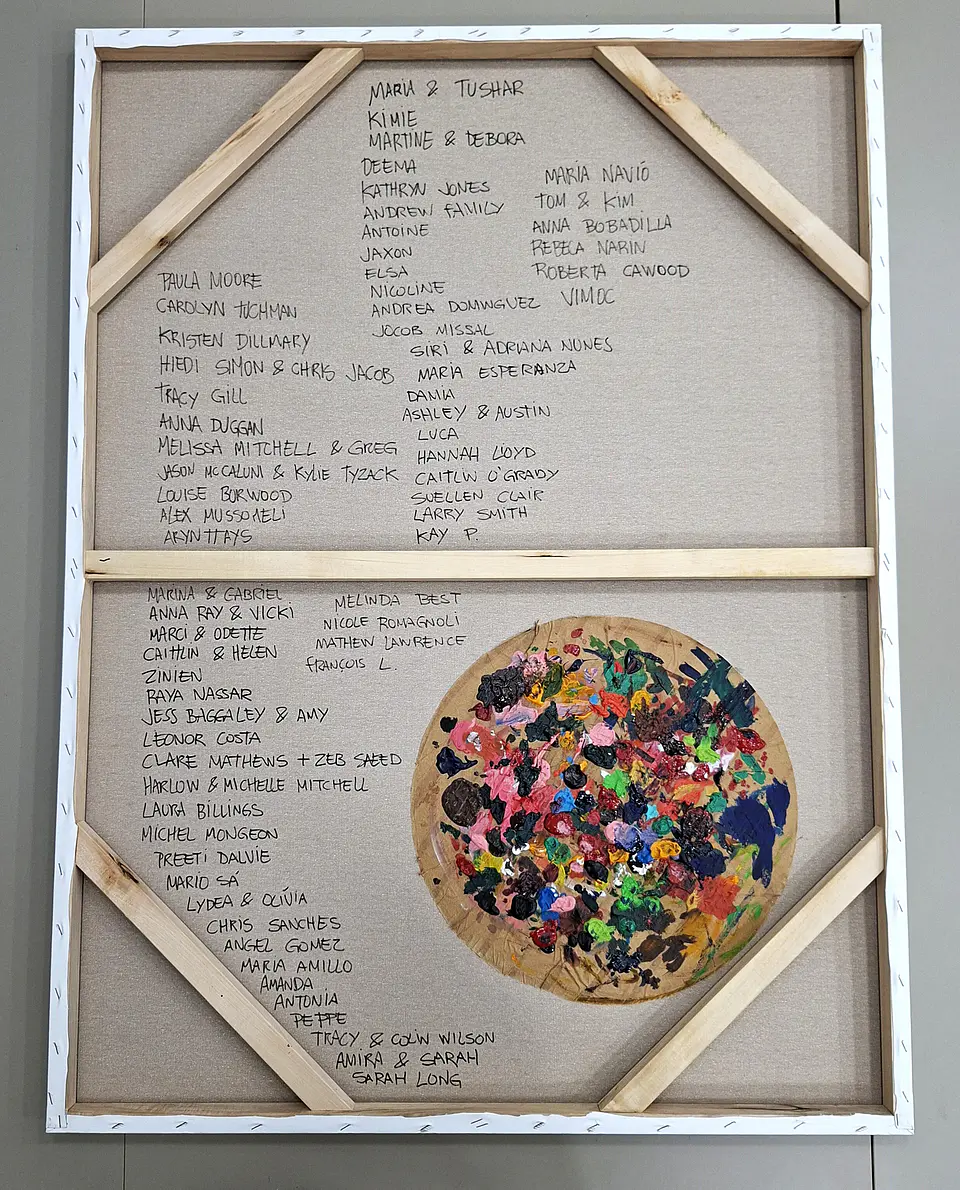 MARIA & TUSHAR
KIMIE
MARTINE & DEBORA
DEEMA
KATHRYN JONES
ANDREW FAMILY
ANTOINE
JAXON
ELSA
NICOLINE
ANDREA DOMINGUEZ
JOCOB MISSAL
SIRI & ADRIANA NUNES
MARIA ESPERANZA
DAMIA
ASHLEY & AUSTIN
LUCA
HANNAH LLOYD
CAITLIN O'GRADY
SUELLEN CLAIR
LARRY SMITH
KAY P.
MARIA NAVIÓ
TOM & KIM
ANNA BOBADILLA
REBECA NARIN
ROBERTA CAWOOD
VIMOC
PAULA MOORE
CAROLYN TUCHMAN
KRISTEN DILLMARY
HIEDI SIMON & CHRIS JACOB
TRACY GILL
ANNA DUGGAN
MELISSA MITCHELL & GREG
JASON & KYLIE TYZACK
LOUISE BURWOOD
ALEX
MARINA & GABRIEL
ANNA RAY & VICKI
MARCI & ODETTE
CAITLIN & HELEN
ZINIEN
RAYA NASSAR
JESS BAGGALEY & AMY
LEONOR COSTA
CLARE MATHEWS + ZEB SAEED
HARLOW & MICHELLE MITCHELL
LAURA BILLINGS
MICHEL MONGEON
PREETI DALVIE
MARIO SÁ
LYDEA & OLÍVIA
CHRIS SANCHES
ANGEL GOMEZ
MARIA AMILLO
AMANDA
ANTONIA
PEPPE
TRACY & COLIN WILSON
AMIRA & SARAH
SARAH LONG
MELINDA BEST
NICOLE ROMAGNOLI
MATHEW LAWRENCE
FRANÇOIS L.